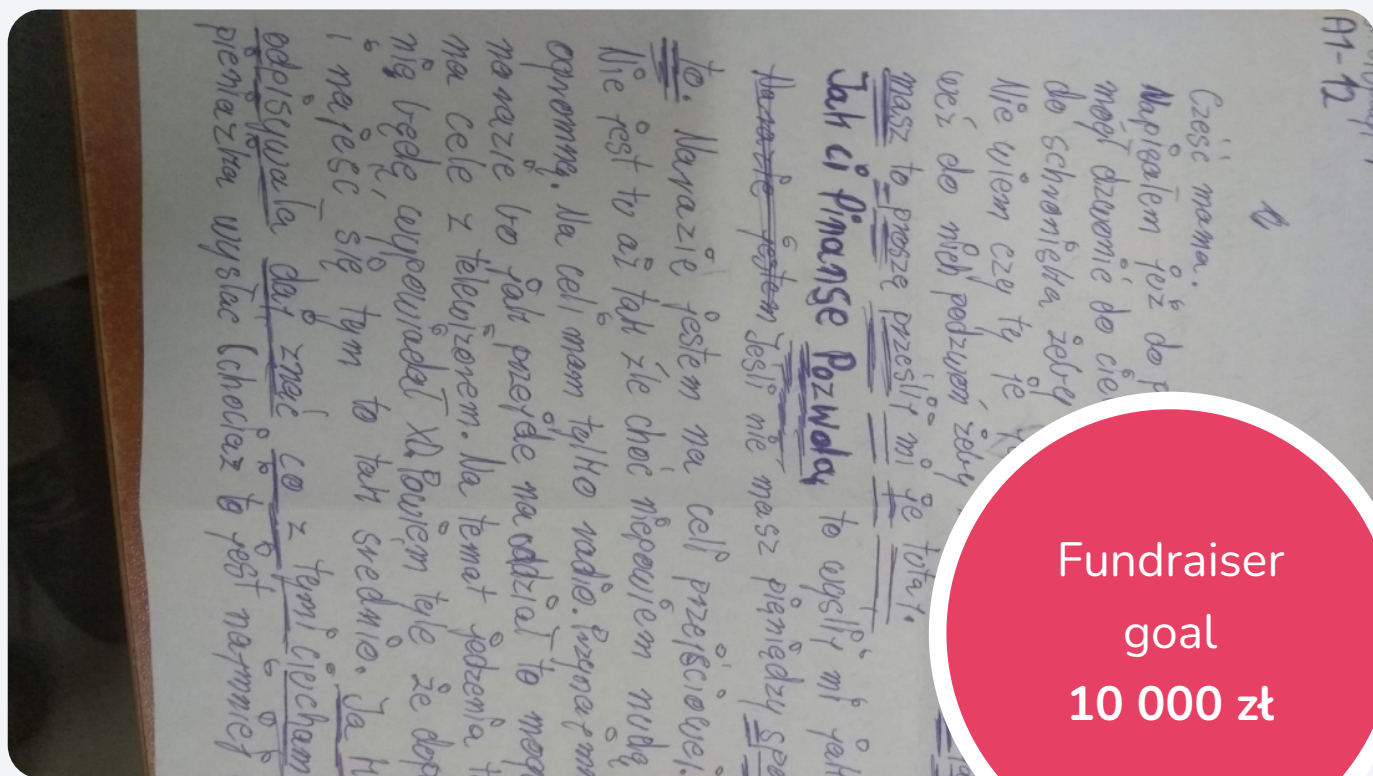 A1-12
Cześć mama.
Napisałem już do
mógł dzwonić do
do schroniska żeby
Nie wiem czy ty je
weź do nich podzwoń żeby
masz to proszę prześlij mi je tutaj.
Jak ci finanse Pozwolą to wyslij mi jak
Narazie jestem Jeśli nie masz pieniędzy
to. Narazie jestem na celi przejściowej.
Nie jest to aż tak źle choć niepowiem nudą
ogromną. Na celi mam tylko radio.
na razie bo jak przejde na oddział to mogę
na cele z telewizorem. Na temat jedzenia
nie będę wypowiadał xd Powiem tyle że
i najeść się tym to tak srednio. Ja
odpisywała daj znać co z tymi ciucham
pieniązka wysłac (chociaz to jest najmniej
Fundraiser
goal
10 000 zł